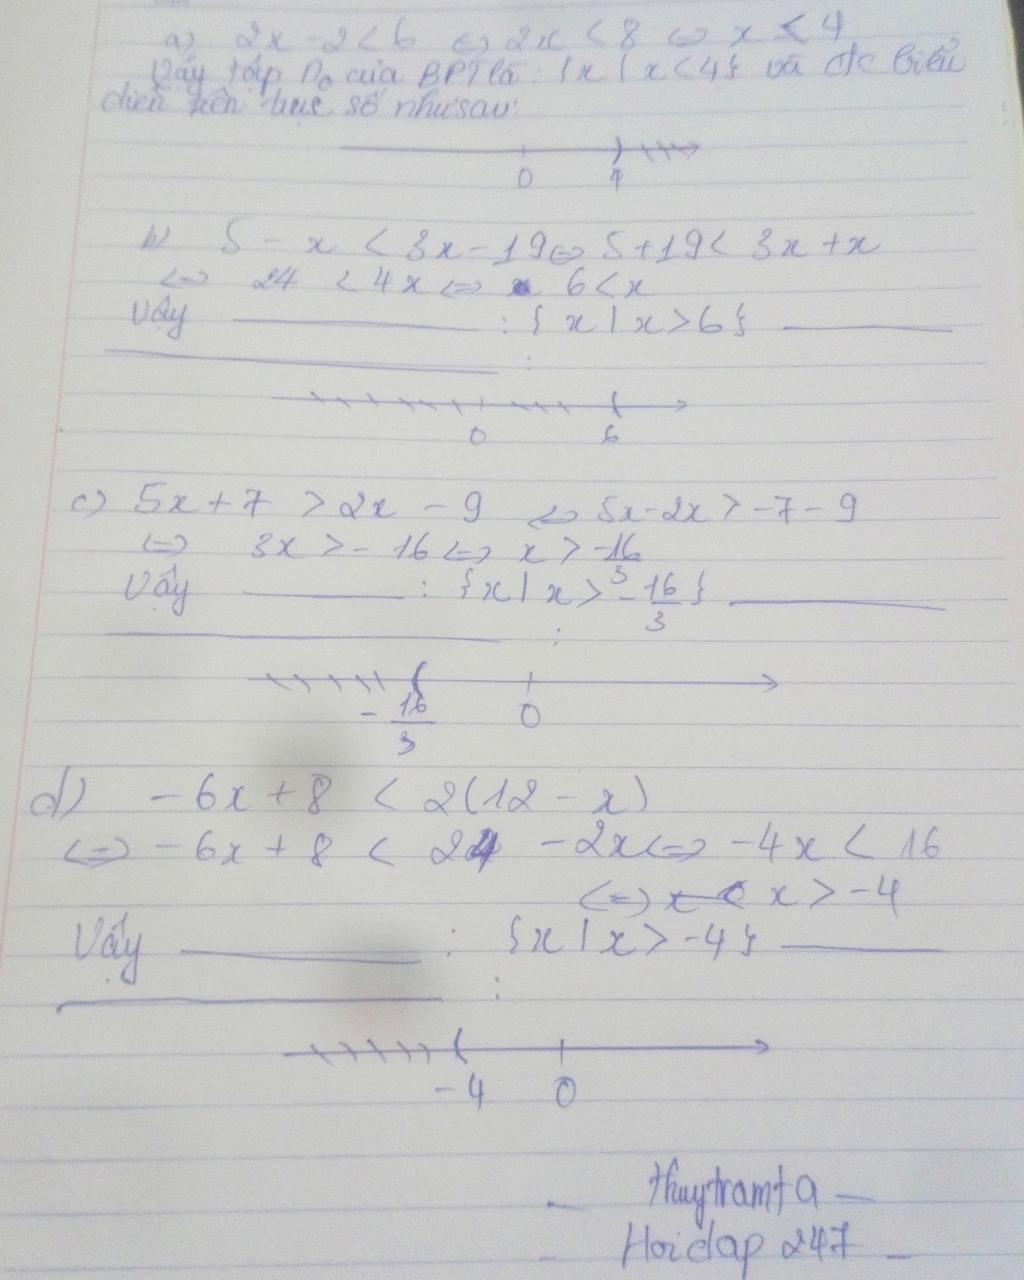 a) 2x - 2 < 6 <=> 2x < 8 <=> x < 4
Vậy tập no của BPT là : {x | x < 4} và đc biểu
diễn trên trục số như sau:
0 4
b) 5 - x < 3x - 19 <=> 5 + 19 < 3x + x
<=> 24 < 4x <=> 6 < x
Vậy : {x | x > 6}
:
0 6
c) 5x + 7 > 2x - 9 <=> 5x - 2x > -7 - 9
<=> 3x > -16 <=> x > -16/3
Vậy : {x | x > -16/3}
:
-16/3 0
d) -6x + 8 < 2(12 - x)
<=> -6x + 8 < 24 - 2x <=> -4x < 16
<=> x > -4
Vậy : {x | x > -4}
:
-4 0
- thuytramta -
- Hoidap 247 -